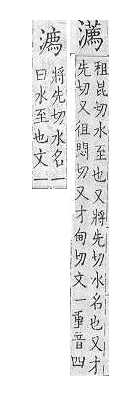 瀳
租昆切水至也又將先切水名也又才
先切又徂悶切又才甸切文一重音四
將先切水名一
曰水至也文一